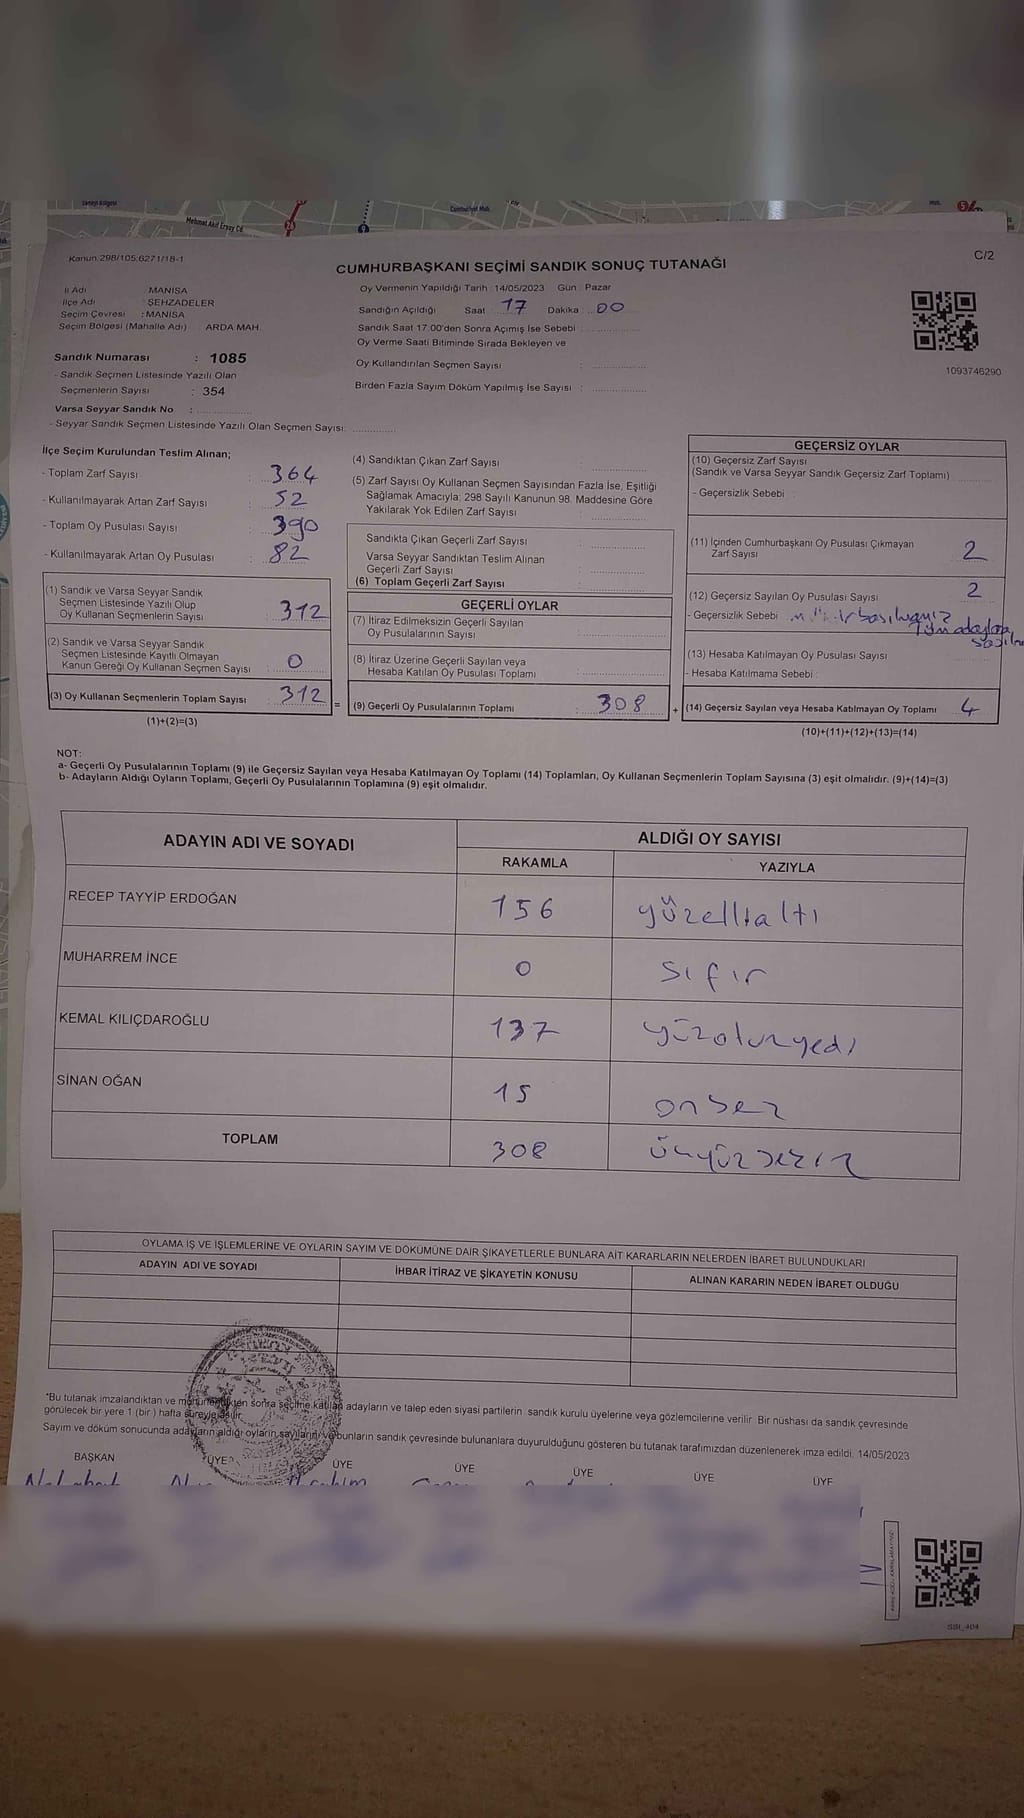 Mehmet Akif Ersoy Cd
Cumhuriyet Mah.
Kanun:298/105:6271/18-1
C/2
CUMHURBAŞKANI SEÇİMİ SANDIK SONUÇ TUTANAĞI
İl Adı MANİSA
İlçe Adı ŞEHZADELER
Seçim Çevresi : MANİSA
Seçim Bölgesi (Mahalle Adı) ARDA MAH.
Oy Vermenin Yapıldığı Tarih :14/05/2023 Gün : Pazar
Sandığın Açıldığı Saat : 17 Dakika : 00
Sandık Saat 17:00'den Sonra Açımış İse Sebebi :
Oy Verme Saati Bitiminde Sırada Bekleyen ve
Oy Kullandırılan Seçmen Sayısı :
Birden Fazla Sayım Döküm Yapılmış İse Sayısı :
1093746290
Sandık Numarası : 1085
- Sandık Seçmen Listesinde Yazılı Olan
Seçmenlerin Sayısı : 354
Varsa Seyyar Sandık No :
- Seyyar Sandık Seçmen Listesinde Yazılı Olan Seçmen Sayısı:
İlçe Seçim Kurulundan Teslim Alınan;
- Toplam Zarf Sayısı : 364
- Kullanılmayarak Artan Zarf Sayısı : 52
- Toplam Oy Pusulası Sayısı : 390
- Kullanılmayarak Artan Oy Pusulası : 82
(1) Sandık ve Varsa Seyyar Sandık
Seçmen Listesinde Yazılı Olup
Oy Kullanan Seçmenlerin Sayısı : 312
(2) Sandık ve Varsa Seyyar Sandık
Seçmen Listesinde Kayıtlı Olmayan
Kanun Gereği Oy Kullanan Seçmen Sayısı : 0
(3) Oy Kullanan Seçmenlerin Toplam Sayısı : 312
(1)+(2)=(3)
=
(4) Sandıktan Çıkan Zarf Sayısı :
(5) Zarf Sayısı Oy Kullanan Seçmen Sayısından Fazla İse, Eşitliği
Sağlamak Amacıyla; 298 Sayılı Kanunun 98. Maddesine Göre
Yakılarak Yok Edilen Zarf Sayısı :
Sandıkta Çıkan Geçerli Zarf Sayısı :
Varsa Seyyar Sandıktan Teslim Alınan
Geçerli Zarf Sayısı :
(6) Toplam Geçerli Zarf Sayısı :
GEÇERLİ OYLAR
(7) İtiraz Edilmeksizin Geçerli Sayılan
Oy Pusulalarının Sayısı :
(8) İtiraz Üzerine Geçerli Sayılan veya
Hesaba Katılan Oy Pusulası Toplamı :
(9) Geçerli Oy Pusulalarının Toplamı : 308
+
GEÇERSİZ OYLAR
(10) Geçersiz Zarf Sayısı
(Sandık ve Varsa Seyyar Sandık Geçersiz Zarf Toplamı)
- Geçersizlik Sebebi :
(11) İçinden Cumhurbaşkanı Oy Pusulası Çıkmayan
Zarf Sayısı 2
(12) Geçersiz Sayılan Oy Pusulası Sayısı 2
- Geçersizlik Sebebi :
(13) Hesaba Katılmayan Oy Pusulası Sayısı
- Hesaba Katılmama Sebebi :
(14) Geçersiz Sayılan veya Hesaba Katılmayan Oy Toplamı 4
(10)+(11)+(12)+(13)=(14)
NOT:
a- Geçerli Oy Pusulalarının Toplamı (9) ile Geçersiz Sayılan veya Hesaba Katılmayan Oy Toplamı (14) Toplamları, Oy Kullanan Seçmenlerin Toplam Sayısına (3) eşit olmalıdır. (9)+(14)=(3)
b- Adayların Aldığı Oyların Toplamı, Geçerli Oy Pusulalarının Toplamına (9) eşit olmalıdır.
ADAYIN ADI VE SOYADI
ALDIĞI OY SAYISI
RAKAMLA YAZIYLA
RECEP TAYYİP ERDOĞAN 156 yüzellialtı
MUHARREM İNCE 0 sıfır
KEMAL KILIÇDAROĞLU 137 yüzotuzyedi
SİNAN OĞAN 15 onbeş
TOPLAM 308 üçyüzsekiz
OYLAMA İŞ VE İŞLEMLERİNE VE OYLARIN SAYIM VE DÖKÜMÜNE DAİR ŞİKAYETLERLE BUNLARA AİT KARARLARIN NELERDEN İBARET BULUNDUKLARI
ADAYIN ADI VE SOYADI İHBAR İTİRAZ VE ŞİKAYETİN KONUSU ALINAN KARARIN NEDEN İBARET OLDUĞU
*Bu tutanak imzalandıktan ve mühürlendikten sonra seçime katılan adayların ve talep eden siyasi partilerin sandık kurulu üyelerine veya gözlemcilerine verilir. Bir nüshası da sandık çevresinde
görülecek bir yere 1 (bir) hafta süreyle asılır.
Sayım ve döküm sonucunda adayların aldığı oyların sayılarını ve bunların sandık çevresinde bulunanlara duyurulduğunu gösteren bu tutanak tarafımızdan düzenlenerek imza edildi. 14/05/2023
BAŞKAN ÜYE ÜYE ÜYE ÜYE ÜYE ÜYE
SSI_404